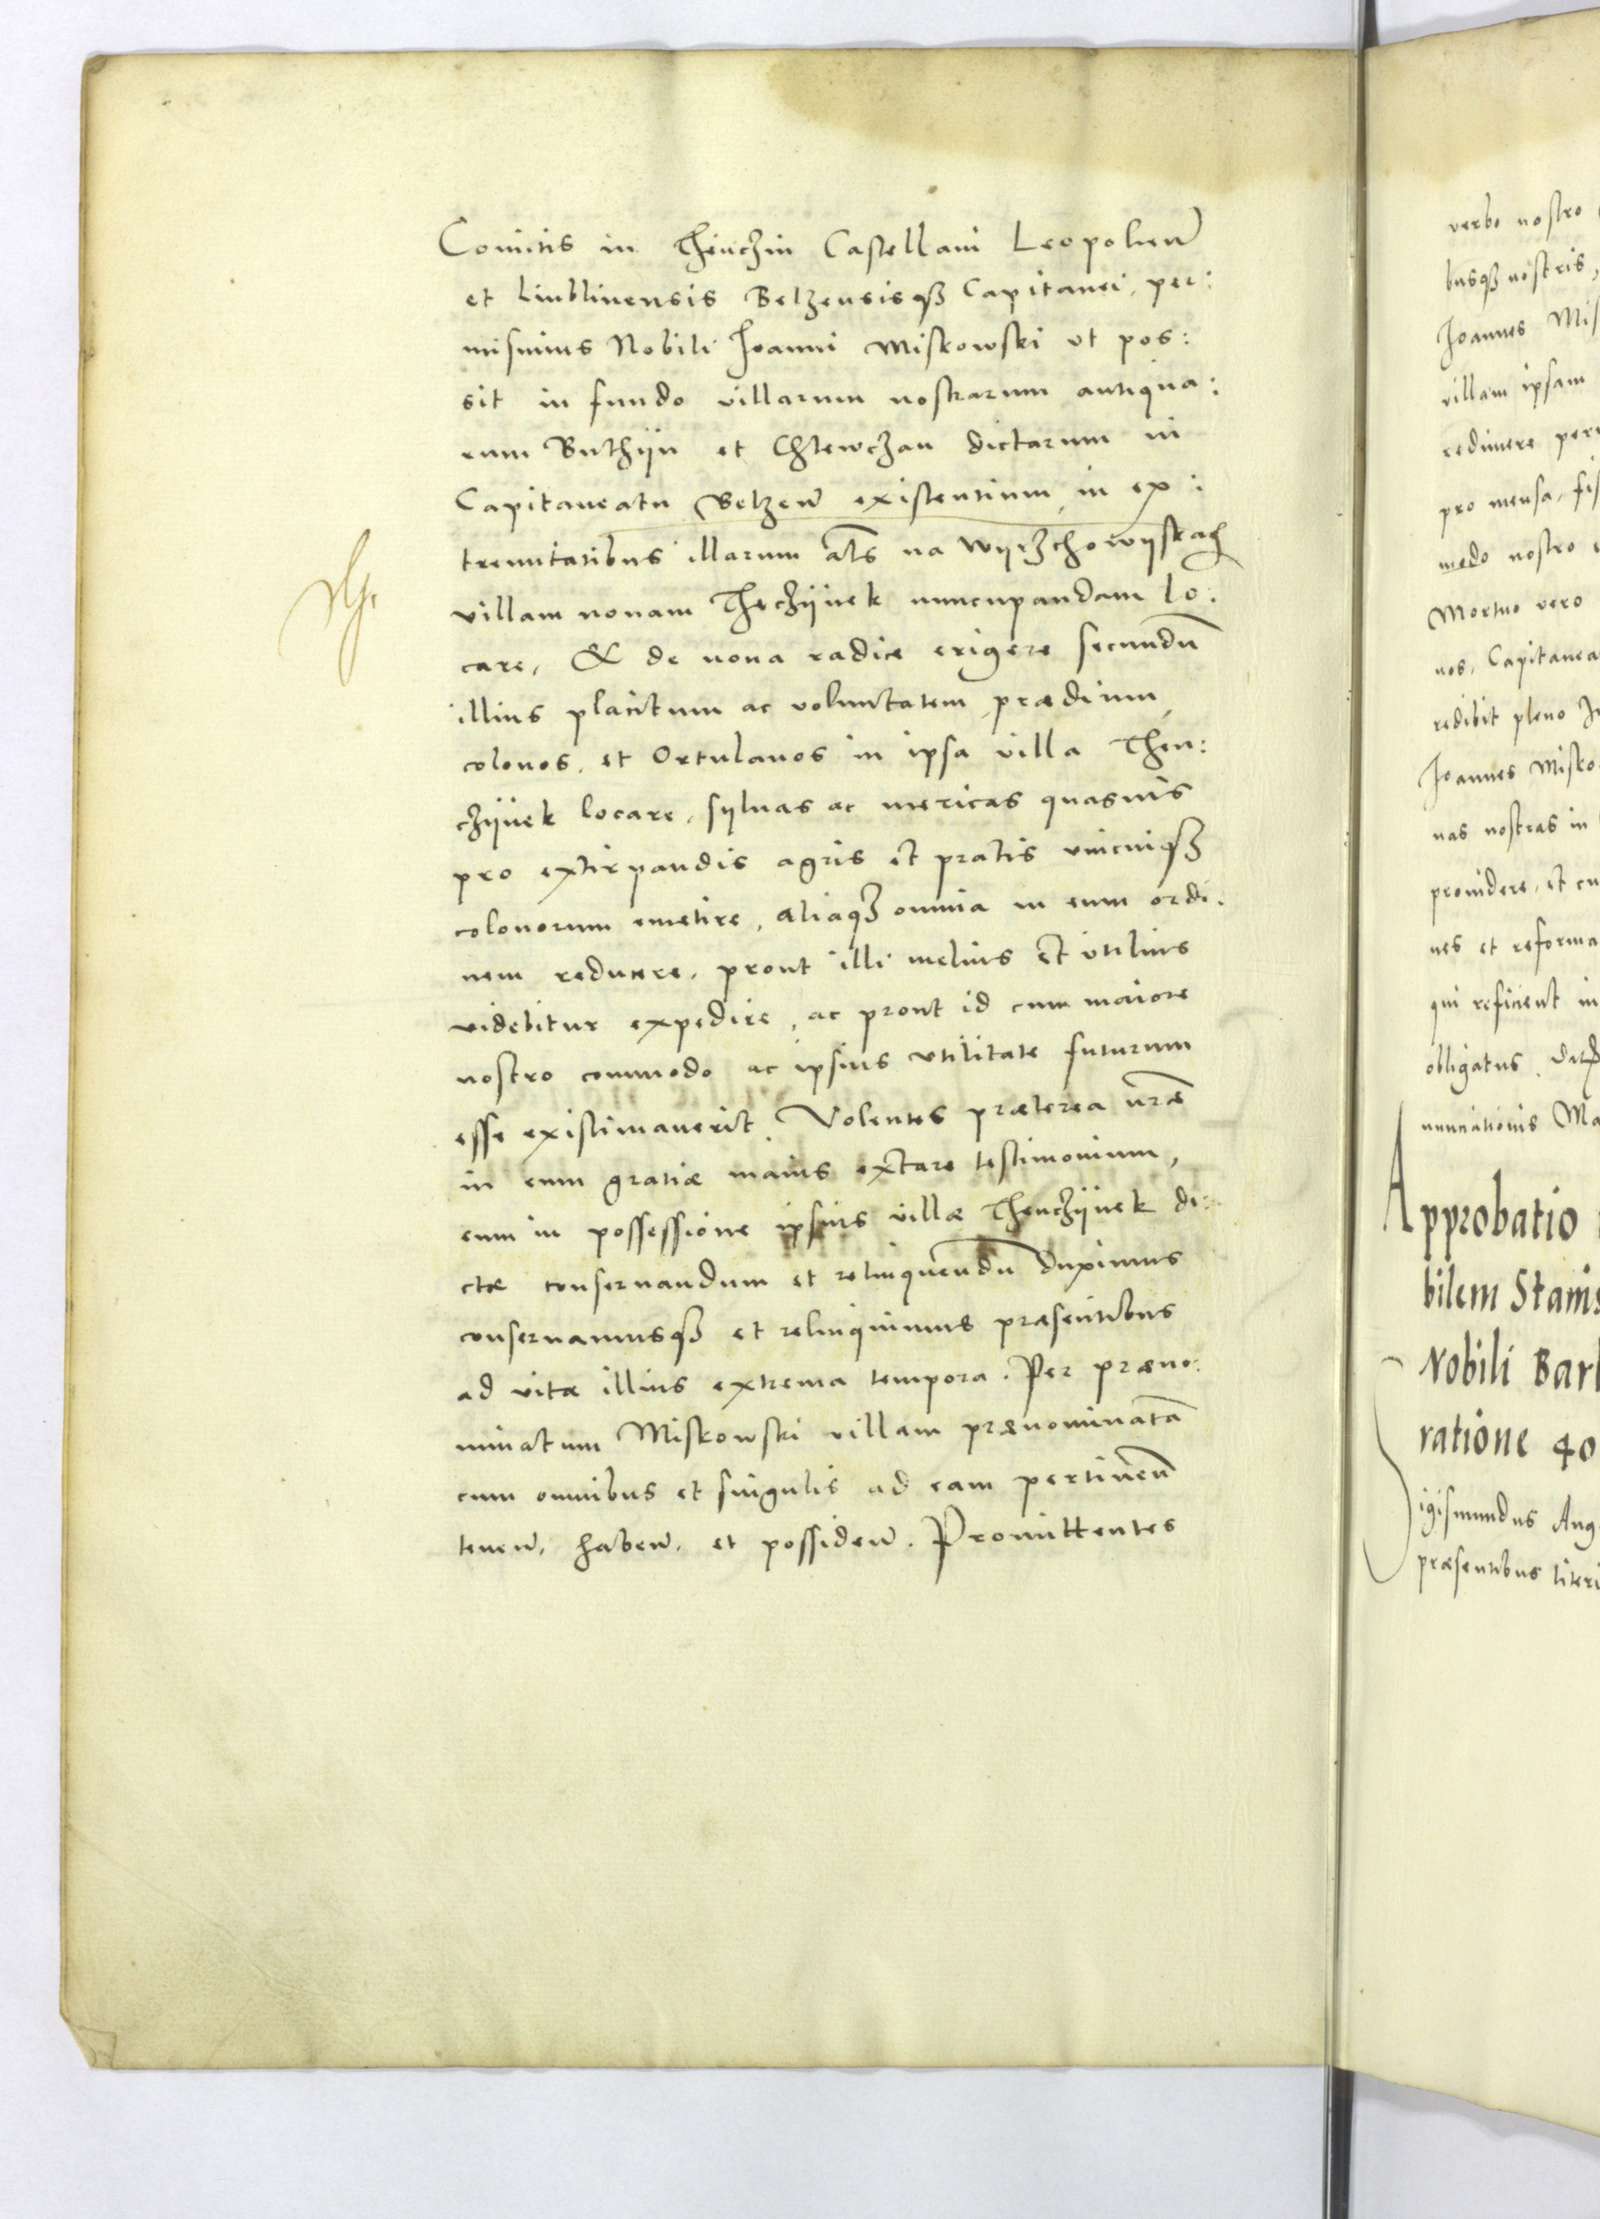 Comitis in Thenczin Castellani Leopolien̄
et Liublinensis Belzensisqȝ Capitanei, per:
misimus Nobili Joanni Miskowski ut pos:
sit in fundo villarum nostrarum antiqua:
rum Buthijn et Chlewczan dictarum in
Capitaneatu Belzen̄ existentium, in ex:
tremitatibus illarum als na Wijrzchowijskach
villam nouam Theczijnek nuncupandam lo:
care, & de noua radice erigere secundū
illius placitum ac voluntatem, prædium,
colonos, et Ortulanos in ipsa villa Then:
czijnek locare, syluas ac mericas quasuis
pro extirpandis agris et pratis vnicuiqȝ
colonorum emetire, aliaqȝ omnia in eum ordi:
nem reducere, prout illi melius et vtilius
videbitur expedire, ac prout id cum maiore
nostro commodo ac ipsius vtilitate futurum
esse existimauerit Volentes præterea nr̄æ
in eum gratiæ maius extare testimonium,
eum in possessione ipsius villæ Thenczijnek di:
ctæ conseruandum et relinquendū duximus
conseruamusqȝ et relinquimus præsentibus
ad vitæ illius extrema tempora. Per præno:
minatum Miskowski villam prænominatā
cum omnibus et singulis ad eam pertinen̄
tenen̄, haben̄, et possiden̄. Promittentes
verbo nostro
busqȝ nostris,
Joannes Mis
villam ipsam
redimere per
pro mensa, fis
modo nostro
Mortuo vero
nos, Capitanea
redibit pleno Ju
Joannes Misko
nas nostras in
prouidere, et cu
nes et reforma
qui reficient in
obligatus. Dat
nunciationis Ma
Approbatio
bilem Stanis
Nobili Barb
ratione 40
Sigismundus Aug
præsentibus literi